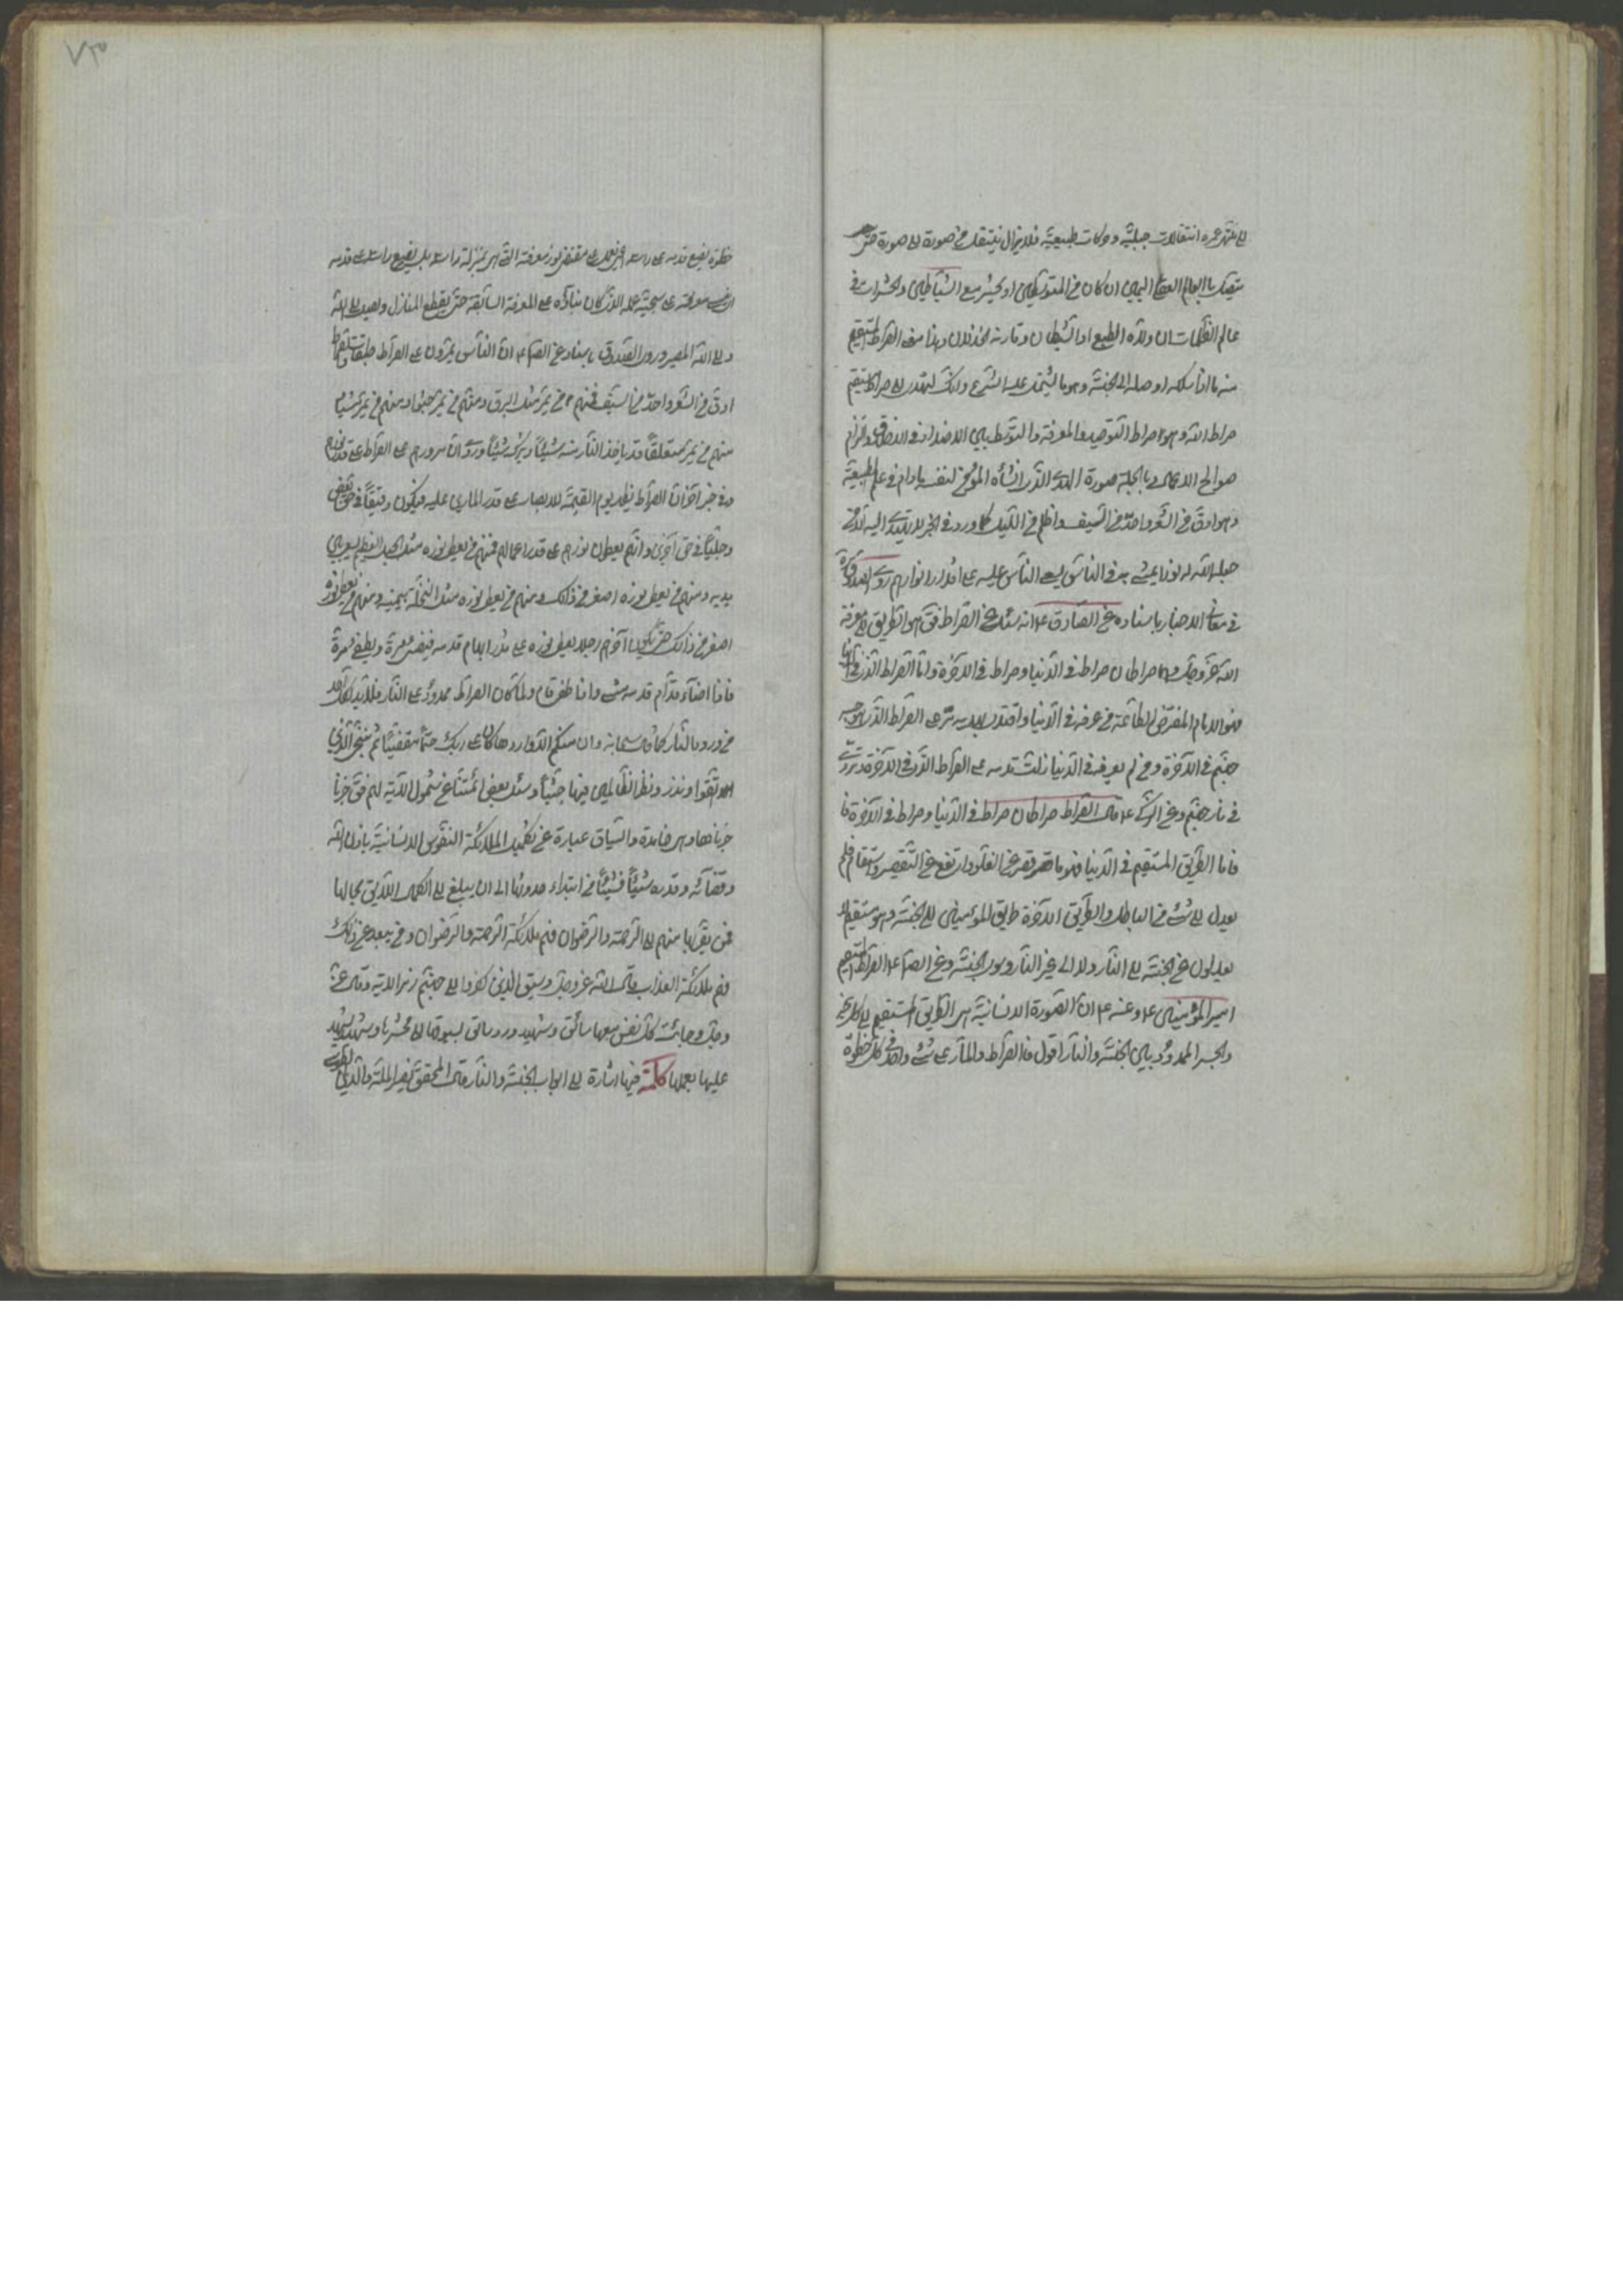 الى منتهى عمره انتقالات جبلية وحركات طبيعية فلا يزال ينتقل من صورة الى صورة حتى
يتصل بالعالم العقلي ان كان من المتوسطين او يحشر مع الشياطين والحشرات في
عالم الظلمات ان ولاه الطبع او الشيطان وقارنه الخذلان وهذا معنى الصراط المستقيم
منه ما اذا سلكه اوصله الى الجنة وهو ما يشتمل عليه الشرع وانك لتهدي الى صراط مستقيم
صراط الله وهو صراط التوحيد والمعرفة والتوسط بين الاضداد في الاخلاق والتزام
صوالح الاعمال وبالجملة صورة الهدى الذي انشأه المؤمن لنفسه ما دام في عالم الطبيعة
وهو ادق من الشعر واحد من السيف واظلم من الليل كما ورد في الخبر لا يهتدي اليه الا من
جعل الله له نورا يمشي به في الناس يسعى الناس عليه على اقدار انوارهم روى الصدوق ره
في معاني الاخبار باسناده عن الصادق ع انه سئل عن الصراط فقال هو الطريق الى معرفة
الله عز وجل وهما صراطان صراط في الدنيا وصراط في الآخرة واما الصراط الذي في الدنيا
فهو الامام المفترض الطاعة من عرفه في الدنيا واقتدى بهديه مر على الصراط الذي هو جسر
جهنم في الآخرة ومن لم يعرفه في الدنيا زلت قدمه على الصراط الذي في الآخرة فتردى
في نار جهنم وعن ع قال الصراط صراطان صراط في الدنيا وصراط في الآخرة
فاما الطريق المستقيم في الدنيا فهو ما قصر عن الغلو وارتفع عن التقصير واستقام فلم
يعدل الى شيء من الباطل والطريق الآخرة طريق المؤمنين الى الجنة وهو مستقيم لا
يعدلون عن الجنة الى النار ولا الى غير النار وعن الصادق ع الصراط المستقيم
امير المؤمنين ع وعنه ع ان الصورة الانسانية هي الطريق المستقيم الى كل خير
والجسر الممدود بين الجنة والنار اقول فالصراط والمار عليه شيء واحد في كل خطوة
خطوة يضع قدمه على راسه اعني يعمل على مقتضى نور معرفته التي هي بمنزلة راسه بل يضع راسه على قدمه
اي يبني معرفته على نتيجة عمله الذي كان بناؤه على المعرفة السابقة حتى يقطع المنازل ويصل الى الله
والى الله المصير وروى الصدوق باسناده عن الصادق ع ان الناس يمرون على الصراط طبقات والصراط
ادق من الشعر واحد من السيف فمنهم من يمر مثل البرق ومنهم من يمر حبوا ومنهم من يمر مشيا
منهم من يمر متعلقا قد ياخذ النار منه شيئا ويترك شيئا وروى ان مرورهم على الصراط على قدر نورهم
وفي خبر آخر ان الصراط يظهر يوم القيمة للابصار على قدر المارين عليه فيكون دقيقا في حق بعض
وجليا في حق آخرين وانهم يعطون نورهم على قدر اعمالهم فمنهم من يعطى نوره مثل الجبل العظيم يسعى بين
يديه ومنهم من يعطى نوره اصغر من ذلك ومنهم من يعطى نوره مثل النخلة بيمينه ومنهم من يعطى نوره
اصغر من ذلك حتى يكون آخرهم رجلا يعطى نوره على قدر ابهام قدمه فيضيء مرة ويطفى مرة
فاذا اضاء قدام قدمه مشى واذا طفى قام ولما كان الصراط ممدودا على النار فلا بد لكل احد
من ورود النار كما قال سبحانه وان منكم الا واردها كان على ربك حتما مقضيا ثم ننجي الذين
اتقوا ونذر الظالمين فيها جثيا وسئل بعض ائمتنا عن شمول الآية لهم فقال جزنا
جزناها وهي خامدة والسياق عبارة عن تكميل الملائكة النفوس الانسانية باذن الله
وقضائه وقدره شيئا فشيئا من ابتداء حدوثها الى ان يبلغ الى الكمال اللايق بحالها
فمن يقربها منهم الى الرحمة والرضوان فهم ملائكة الرحمة والرضوان ومن يبعد عن ذلك
فهم ملائكة العذاب قال الله عز وجل وسيق الذين كفروا الى جهنم زمرا الآية وقال عز
وجل وجاءت كل نفس معها سائق وشهيد وورد سائق يسوقها الى محشرها وشهيد يشهد
عليها بعملها كلمة فيها اشارة الى ابواب الجنة والنار قال المحقق نصير الملة والدين الطوسي